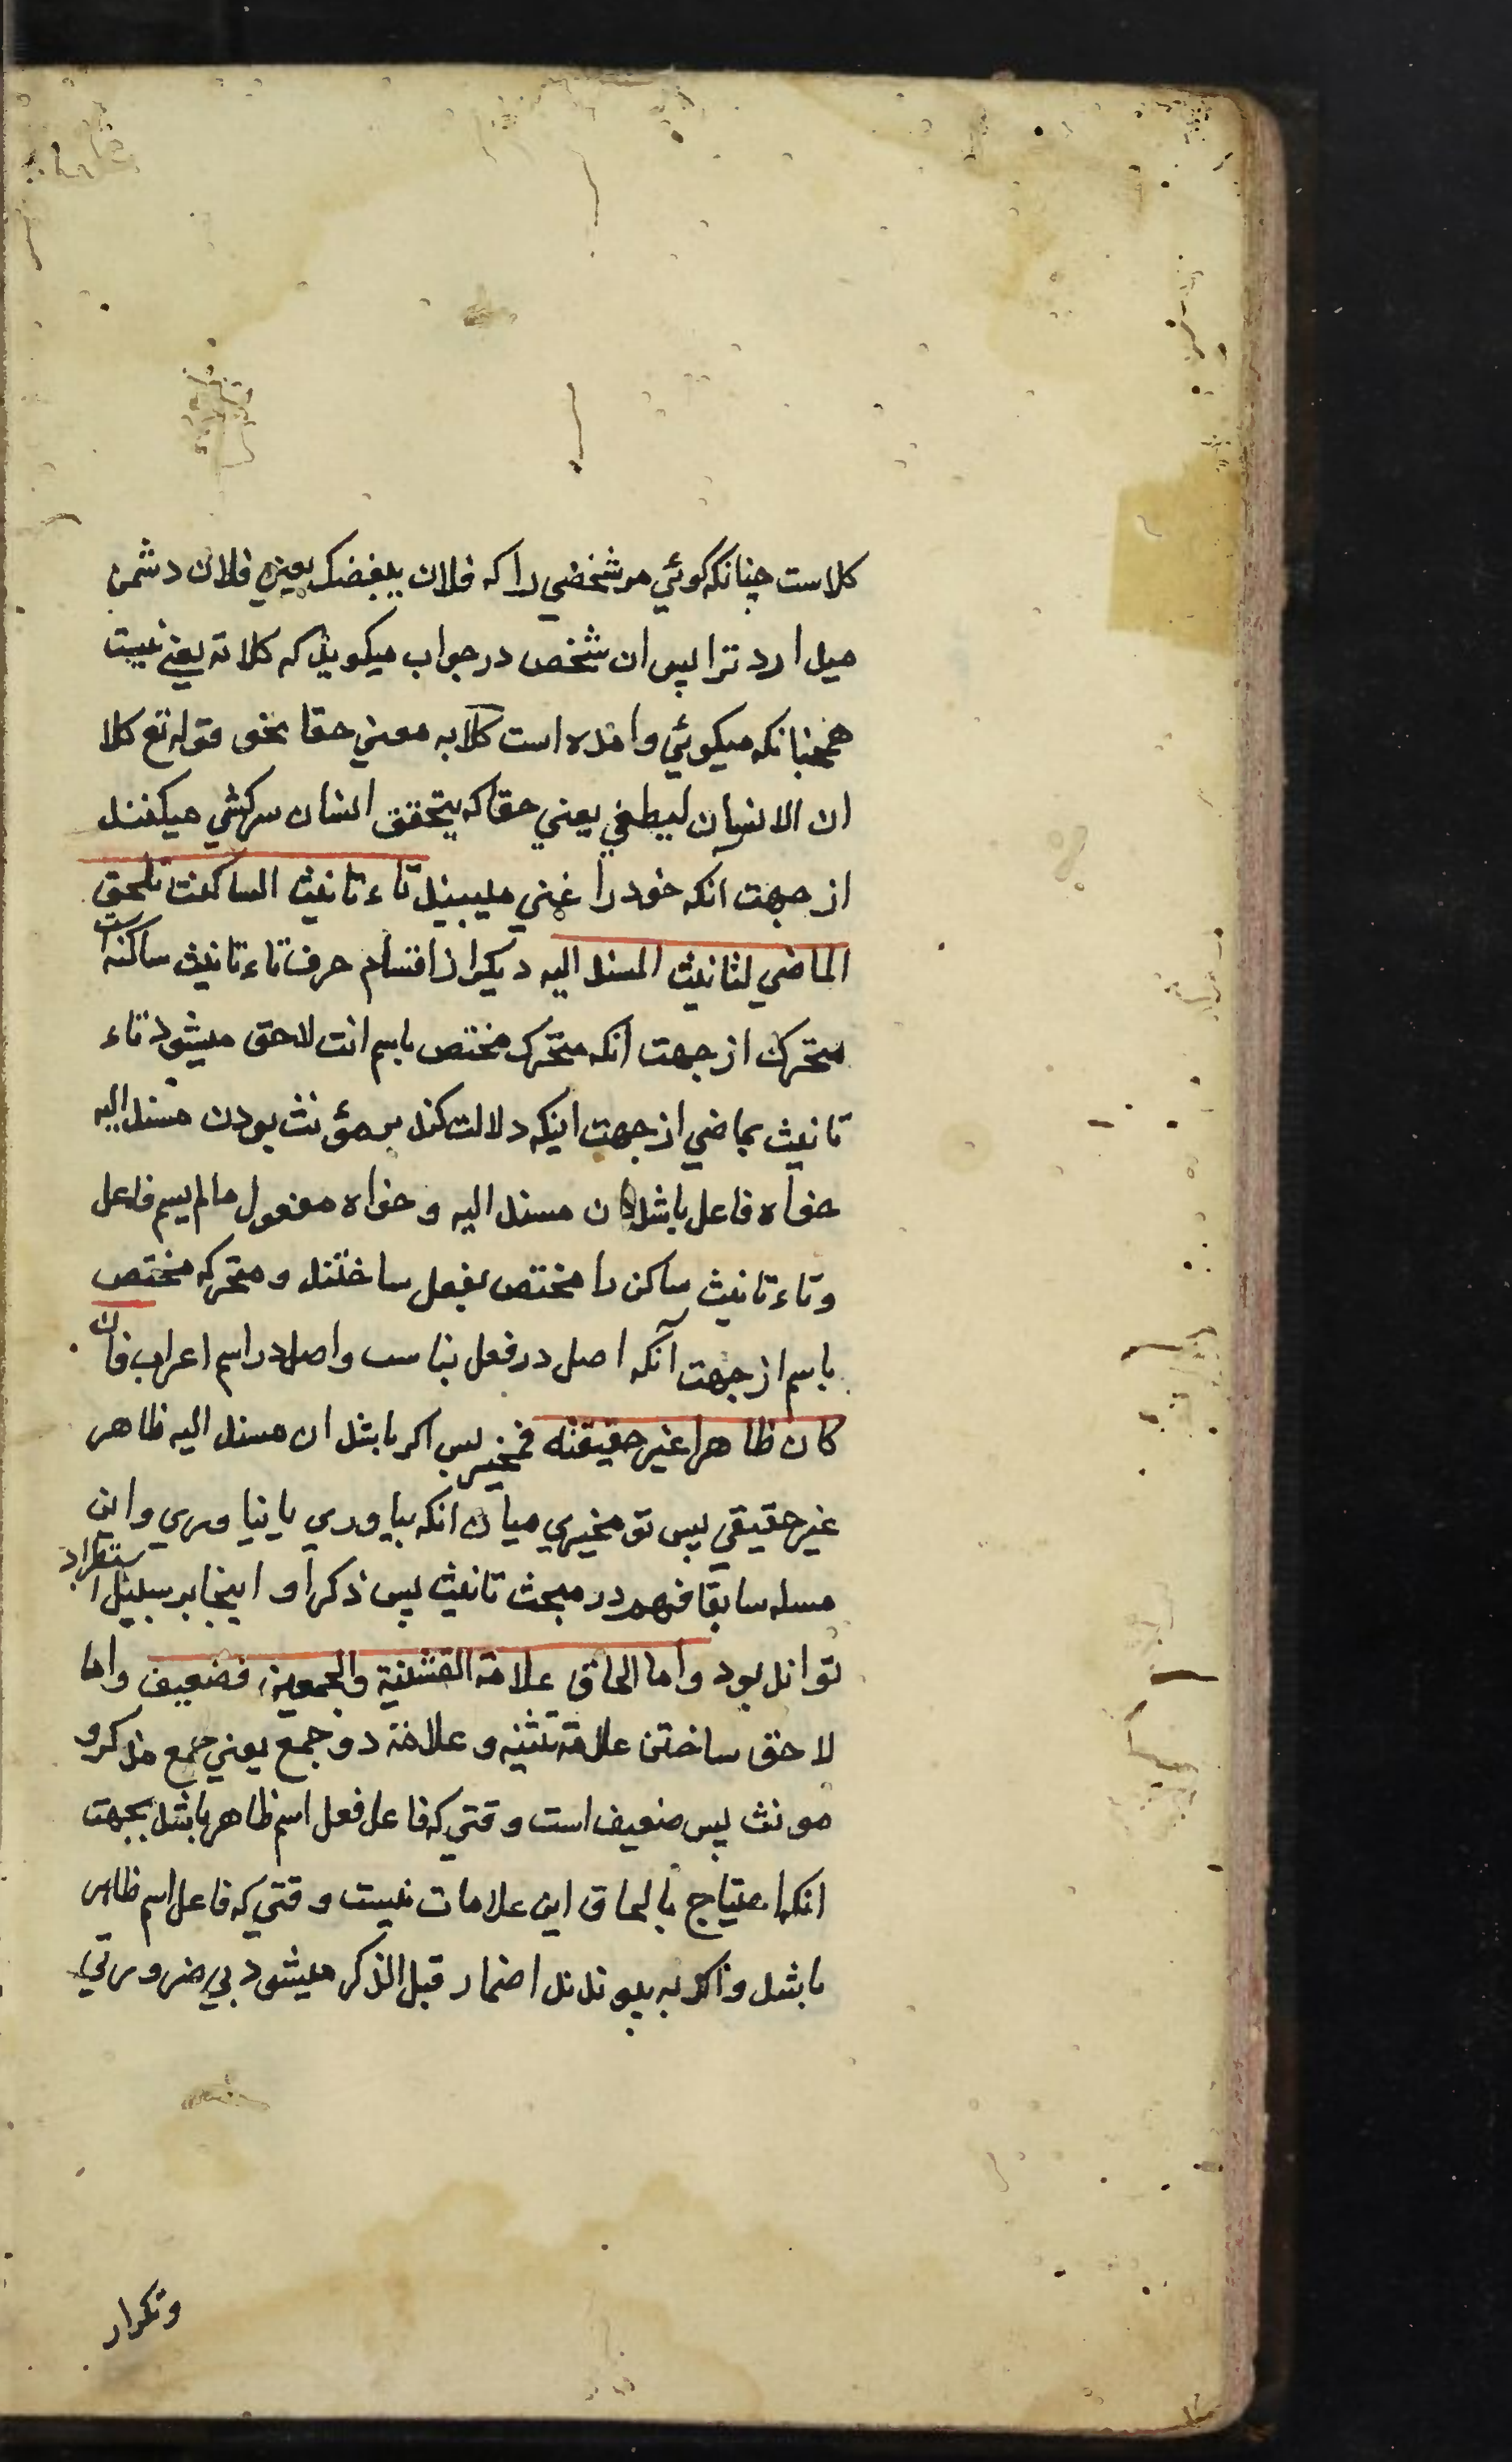 كلاست چنانكه كوئي مر شخصي را كه فلان يبغضك يعني فلان دشمن
ميدارد ترا پس ان شخص در جواب ميكويد كه كلا نه يعني نيست
همچنانكه ميكوئي و امده است كلا به معني حقا نحو قوله تع كلا
ان الانسان ليطغي يعني حقا كه بتحقق انسان سركشي ميكنند
از جهت آنكه خود را غني ميبيند تاء تانيث الساكنت تلحق
الماضي لتانيث المسند اليه ديكر از اقسام حرف تاء تانيث ساكنه است
متحرك از جهت انكه متحرك مختص باسم انت لاحق ميشود تاء
تانيث بماضي از جهت اينكه دلالت كند بر مؤنث بودن مسند اليه
خواه فاعل باشد ان مسند اليه و خواه مفعول مالم يسم فاعل
و تاء تانيث ساكن را مختص بفعل ساختند و متحركه مختص
باسم از جهت آنكه اصل در فعل بناست و اصل در اسم اعراب فان
كان ظاهرا غير حقيقته فمخير پس اكر باشد ان مسند اليه ظاهر
غير حقيقي پس تو مخيري ميان انكه بياوري يا نياوري و اين
مسله سابقا در مبحث تانيث پس ذكر او اينجا بر سبيل استطراد
تواند بود و اما الحاق علامة التثنية والجمعين فضعيف و اما
لاحق ساختن علامة تثنيه و علامة دو جمع يعني جمع مذكر و
مونث پس ضعيف است وقتي كه فاعل فعل اسم ظاهر باشد بجهت
انكه احتياج بالحاق اين علامات نيست وقتي كه فاعل اسم ظاهر
باشد و اكر به پيوندند اضمار قبل الذكر ميشود بي ضرورتي
وتكرار